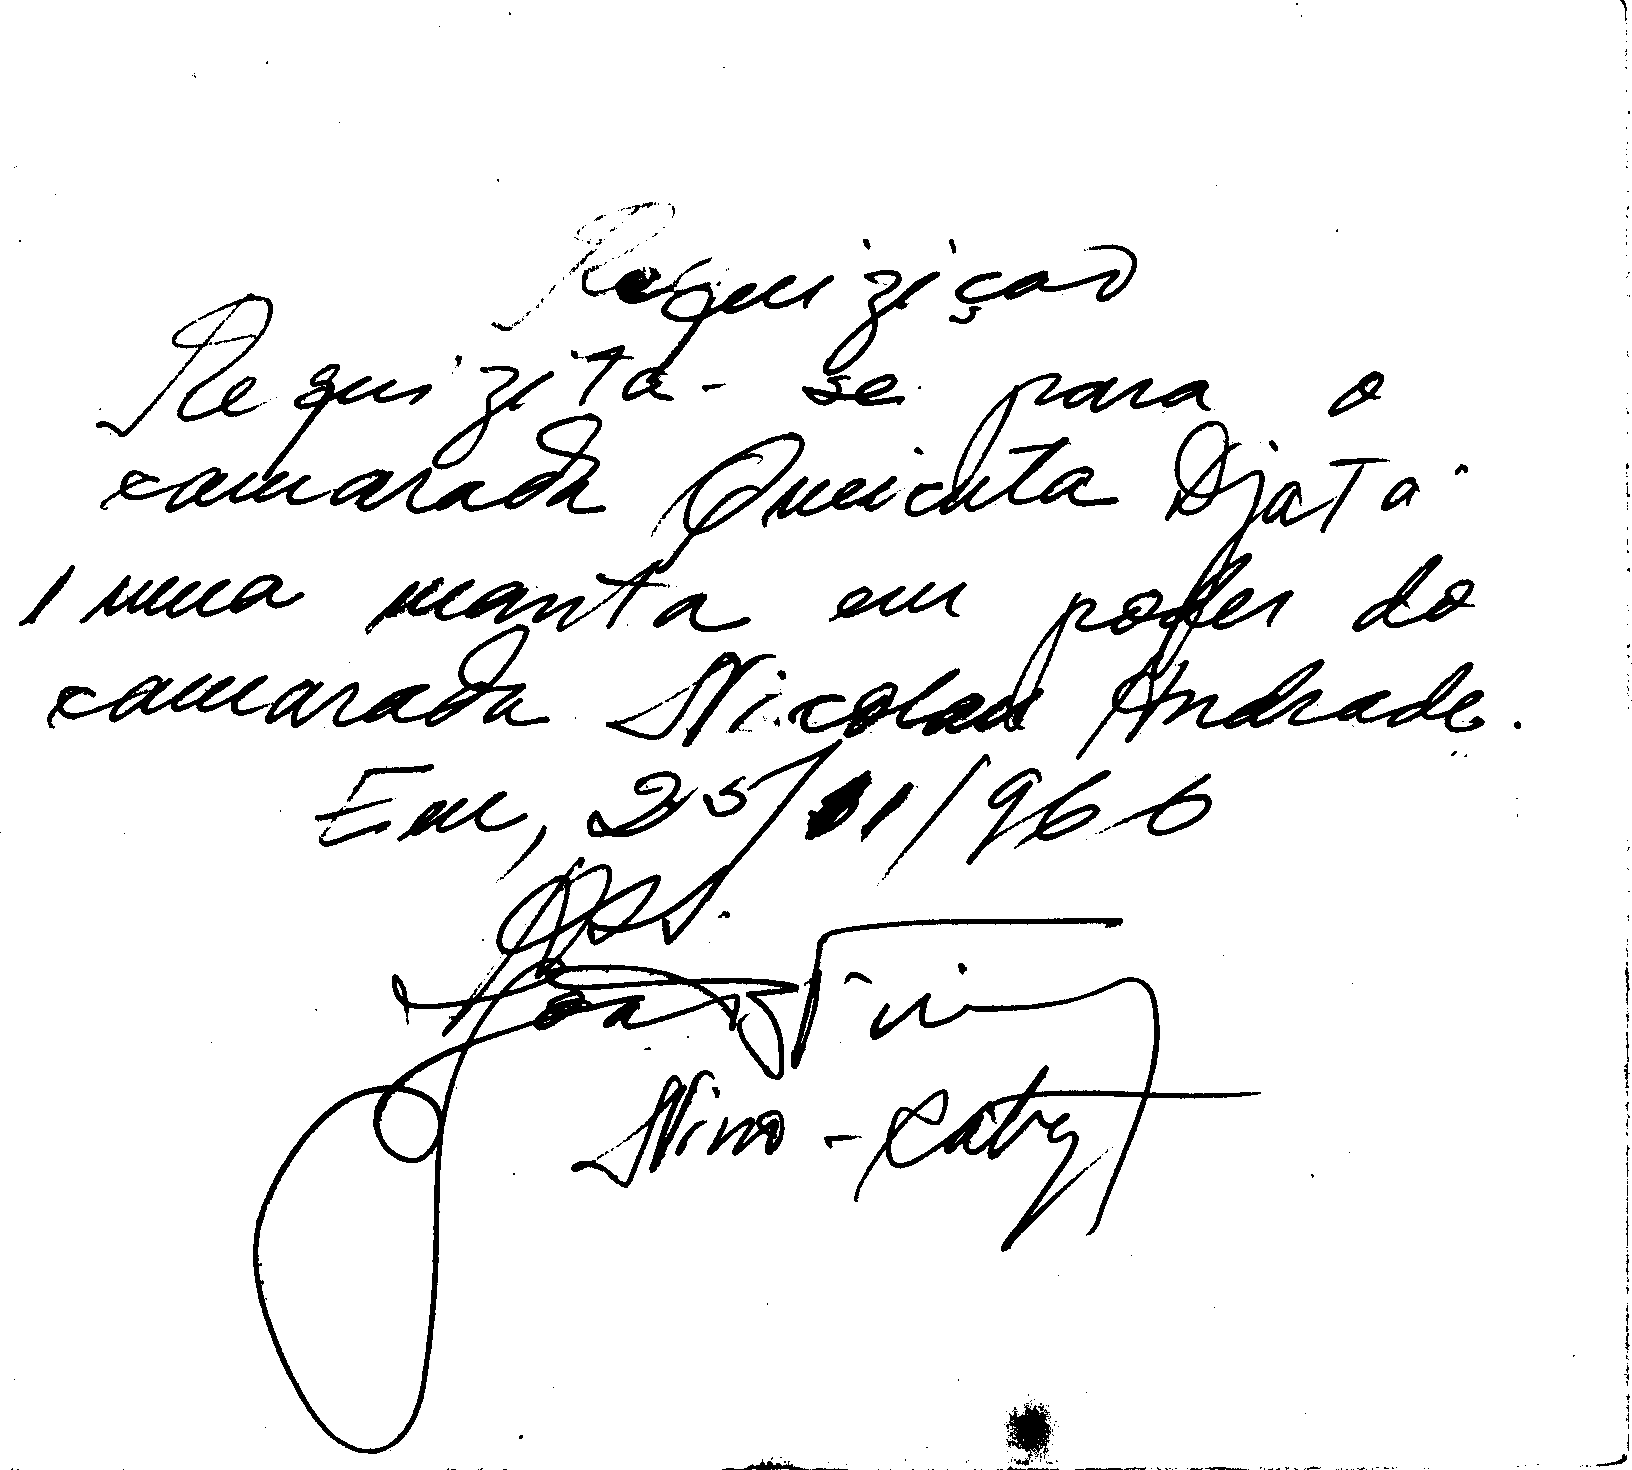 Requizição
Requizita-se para o
camarada Queicuta Djatá
1 uma manta em poder do
camarada Nicolau Andrade.
Em, 25/11/966
Nino-Caby